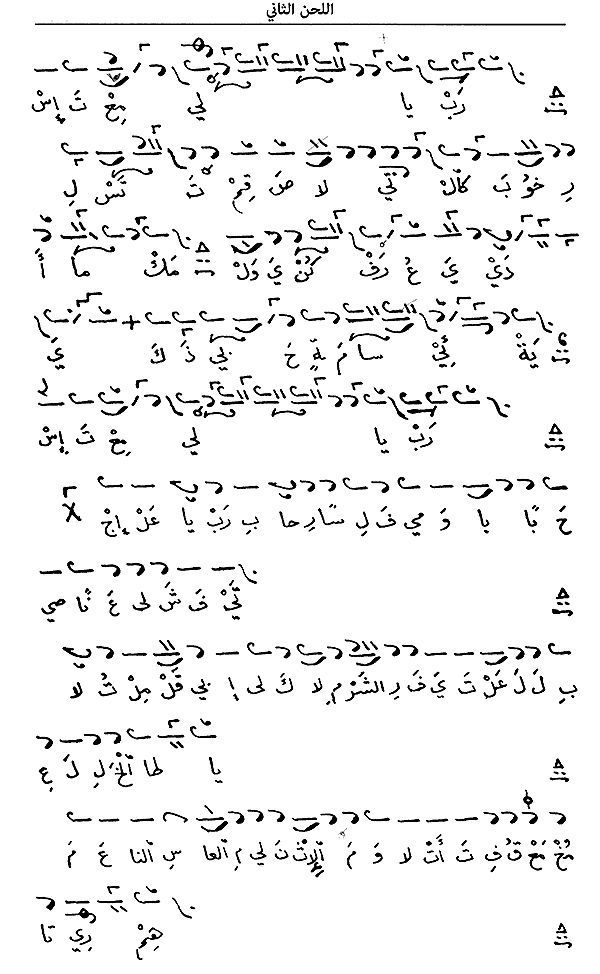 اللحن الثاني
إسْ تَ مِعْ لي يا رَبْ
لِ تَسْ تَ قِمْ صَ لا تي كَالْ بَ خو رِ
أَ ما مَكْ وَلْ يَ كُنْ رَفْ عُ يَ دَيْ
يَ كَ ذَ بي حَ ةٍ مَ سا ئِيْ يَةْ
إسْ تَ مِعْ لي يا رَبْ
إجْ عَلْ يا رَبْ بِ حا رِ سًا لِ فَ مي وَ با بًا حَ
صي نًا عَ لى شَ فَ تَيْ
لا تُ مِلْ قَلْ بي إ لى كَ لا مِ الشَرْ رِ فَ يَ تَ عَلْ لَ لَ بِ
عِ لَ لِ الْخَ طا يا
مَ عَ النا سِ العا مِ لي نَ الإثْ مَ وَ لا أَتْ تَ فِ قُ مَعْ مُخْ
تا رِي هِمْ